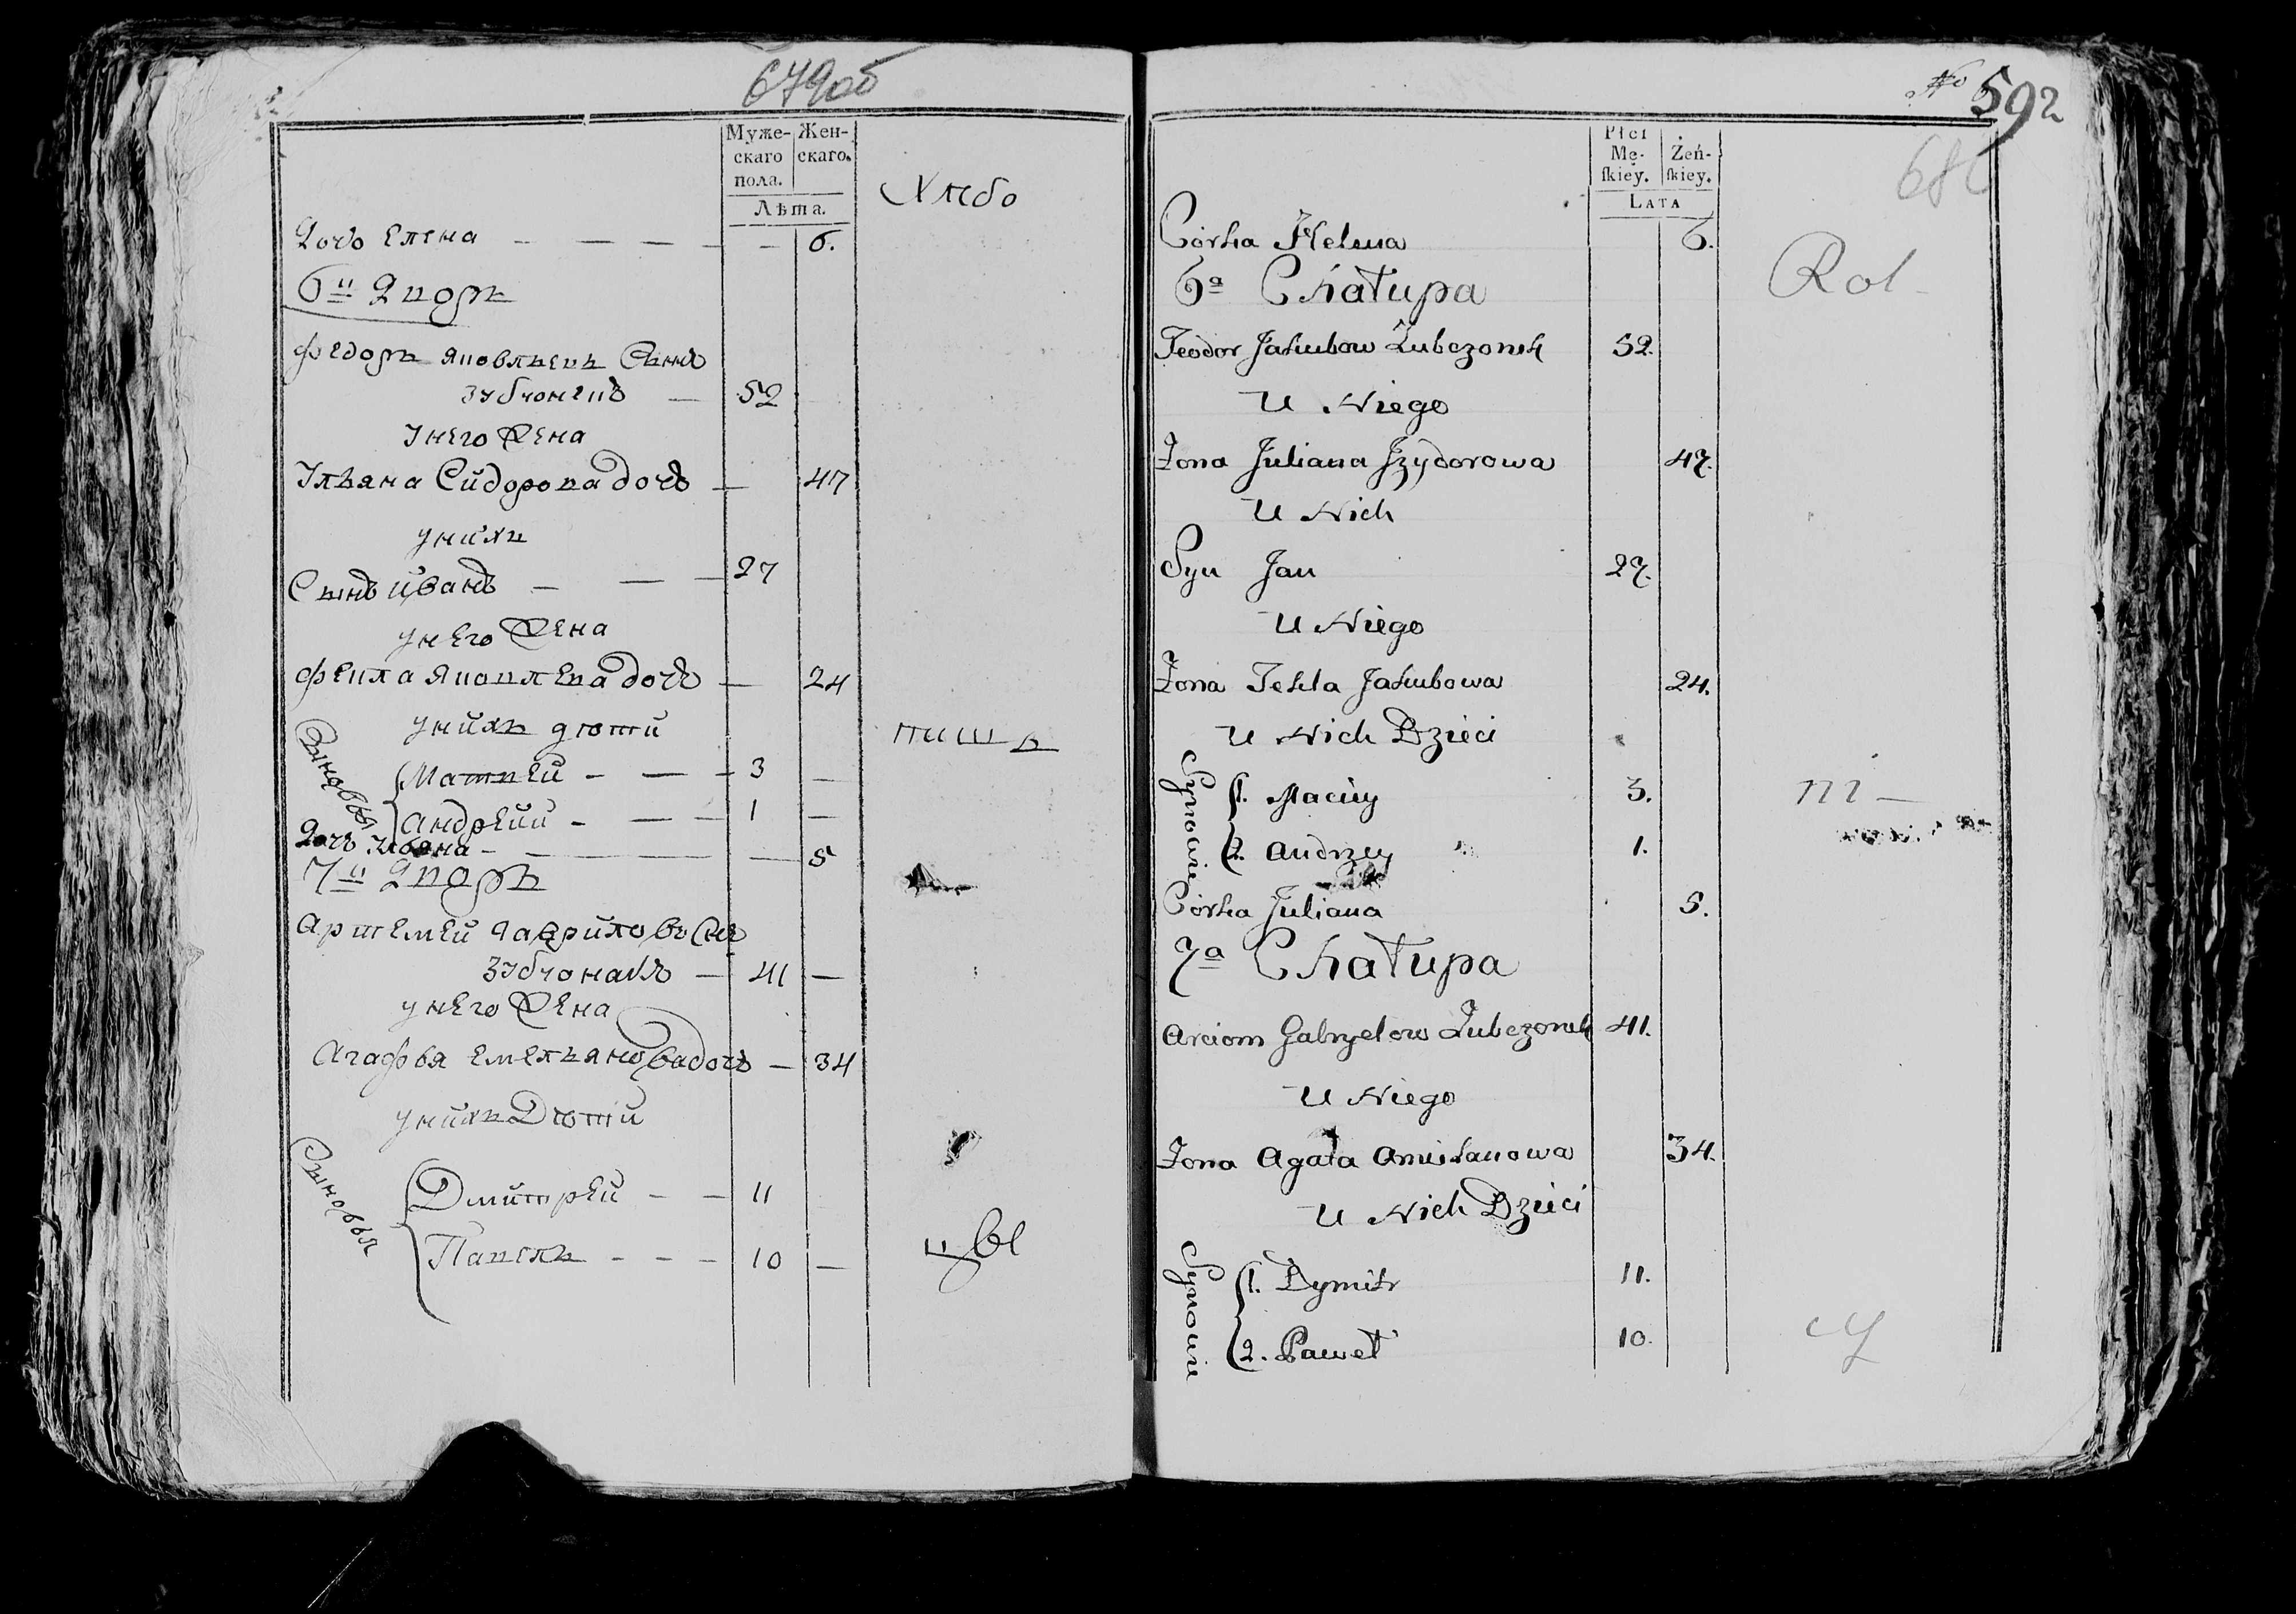 679об
Муже-
скаго
пола.
Жен-
скаго.
Лѣта.
Хлебо
Дочь Елена — — — — — 6.
6й Дворъ
Федоръ Яковлевъ Сынъ
Зубчонекъ — 52
У него Жена
Ульяна Сидорова дочь — 47
у нихъ
Сынъ Иванъ — — — 27
у него Жена
Фекла Яковлева дочь — 24
у нихъ дѣти
пашъ
Сыновья
Матвей — — — 3 —
Андрей — — — 1 —
Дочь Ульяна — — — 5
7й Дворъ
Артемей Гаврилов Сынъ
Зубчонакъ — 41 —
у него Жена
Агафья Емельянова дочь — 34
у нихъ Дѣти
Сыновья
Дмитрей — — 11
Павелъ — — — 10 —
цы
No 592
Płci
Mę-
skiey.
Żeń-
skiey.
LATA
Córka Helena 6.
6a Chałupa
Rol-
Teodor Jakubow Zubczonek 52.
U Niego
Żona Juliana Jzydorowa 47.
U Nich
Syn Jan 27.
U Niego
Żona Tekla Jakubowa 24.
U Nich Dzieci
Synowie
1. Maciey 3.
ni —
2. Andrzey 1.
Córka Juliana 5.
7a Chałupa
Arciom Gabryelow Zubczonek 41.
U Niego
Żona Agata 34.
U Nich Dzieci
Synowie
1. Dymitr 11.
2. Paweł 10.
cy